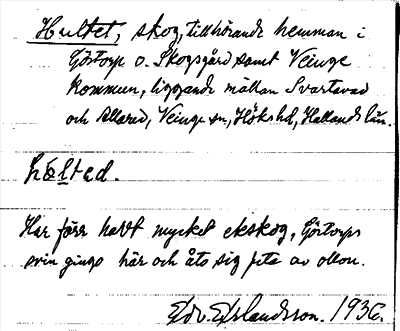 Hultet, skog, tillhörande hemman i
Göstorp o. Skogsgård samt Veinge
kommun, liggande mellan Svartavad
och Allared, Veinge sn, Höks hd, Hallands län.
hæltad.
Har förr havt mycket ekskog, Göstorps
svin gingo här och åto sig feta av ollon.
Edv. Erlandsson. 1936.